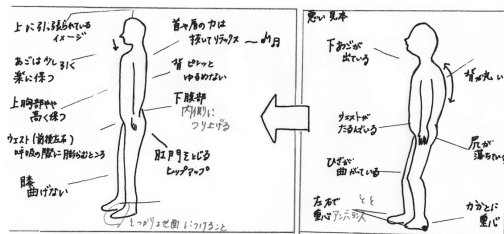 上に引っ張られている
イメージ
あごは少し引く
楽に保つ
上胸部やや
高く保つ
ウェスト(前後左右)
呼吸の際に膨らむところ
膝
曲げない
首や肩の力は
抜いてリラックス
背 ピシッと
ゆるめない
下腹部
内側に
つり上げる
肛門をとじる
ヒップアップ
しっかりと地面につけること
悪い見本
下あごが
出ている
背が丸い
ウェストが
たるんでいる
尻が
落ちている
ひざが
曲がっている
左右で
重心アンバランス
かかとに
重心